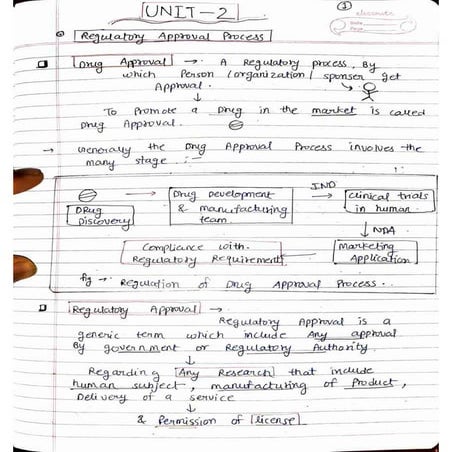 UNIT-2
①
Date
Page
Regulatory Approval Process
Drug Approval → A Regulatory process, By
which Person / organization / sponser get
Approval.
↓
To Promote a Drug in the market is called
Drug Approval.
→ Generally the Drug Approval Process involves the
many stage :-
Drug Discovery
→ Drug Development & manufacturing team
IND → clinical trials in human
↓ NDA
Marketing Application
Compliance with Regulatory Requirement
fig → Regulation of Drug Approval Process.
Regulatory Approval →
Regulatory Approval is a
generic term which include Any approval
By government or Regulatory Authority.
↓
Regarding Any Research that include
human subject, manufacturing of Product,
Delivery of a service
↓
& Permission of license